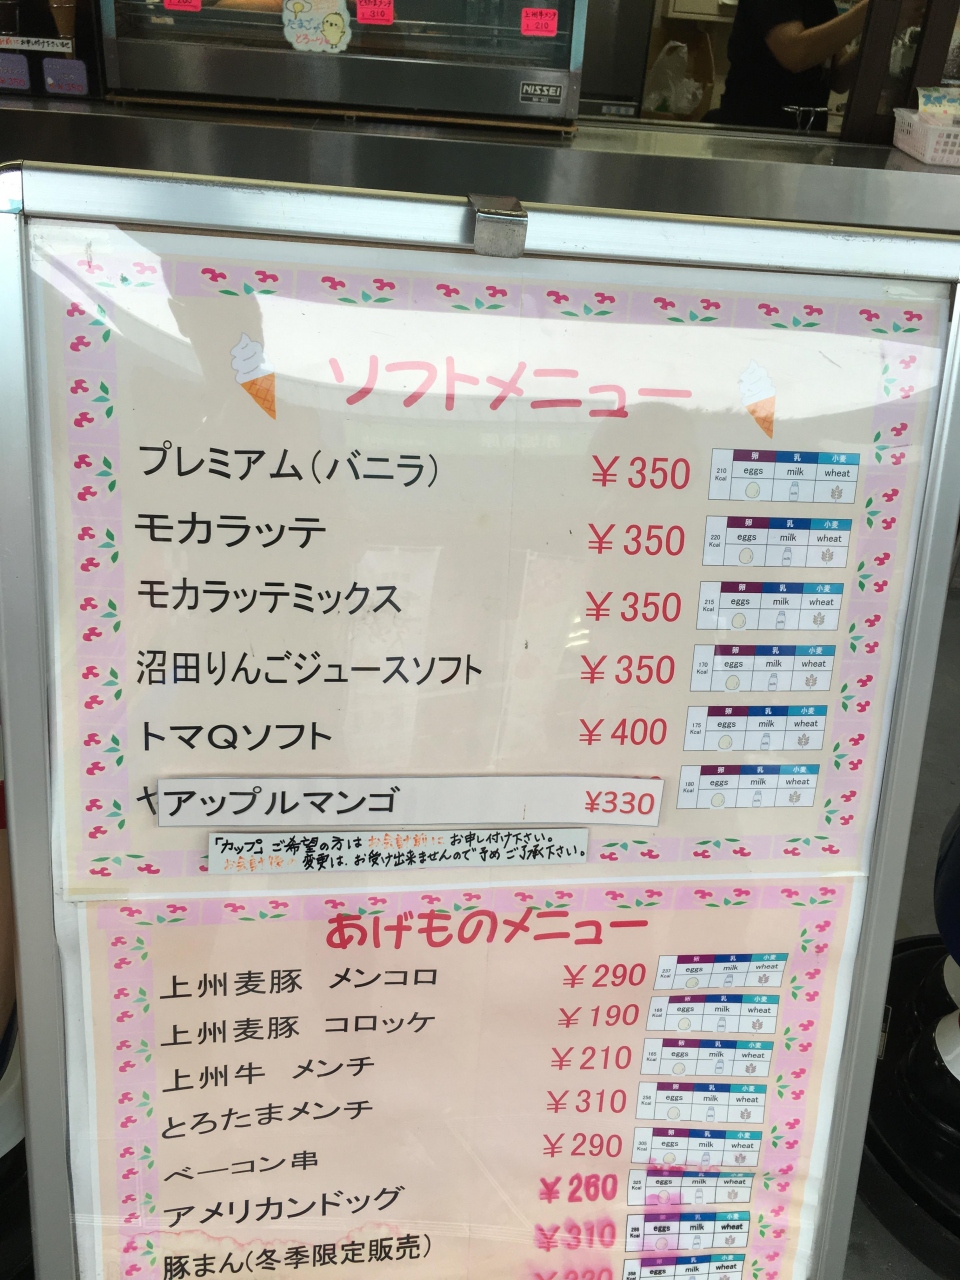 たまごが
とろ〜り
とろたまメンチ
¥310
上州牛メンチ
¥210
NISSEI
ソフトメニュー
プレミアム(バニラ) ¥350 210 Kcal 卵 eggs 乳 milk 小麦 wheat
モカラッテ ¥350 220 Kcal 卵 eggs 乳 milk 小麦 wheat
モカラッテミックス ¥350 215 Kcal 卵 eggs 乳 milk 小麦 wheat
沼田りんごジュースソフト ¥350 170 Kcal 卵 eggs 乳 milk 小麦 wheat
トマQソフト ¥400 175 Kcal 卵 eggs 乳 milk 小麦 wheat
アップルマンゴ ¥330 180 Kcal 卵 eggs 乳 milk 小麦 wheat
「カップ」ご希望の方はお会計前にお申し付け下さい。
お会計後の変更は、お受け出来ませんので予めご了承下さい。
あげものメニュー
上州麦豚 メンコロ ¥290 237 Kcal 卵 eggs 乳 milk 小麦 wheat
上州麦豚 コロッケ ¥190 Kcal 卵 eggs 乳 milk 小麦 wheat
上州牛 メンチ ¥210 Kcal 卵 eggs 乳 milk 小麦 wheat
とろたまメンチ ¥310 Kcal 卵 eggs 乳 milk 小麦 wheat
ベーコン串 ¥290 Kcal 卵 eggs 乳 milk 小麦 wheat
アメリカンドッグ ¥260 Kcal 卵 eggs 乳 milk 小麦 wheat
豚まん(冬季限定販売) ¥310 Kcal 卵 eggs 乳 milk 小麦 wheat
eggs milk wheat